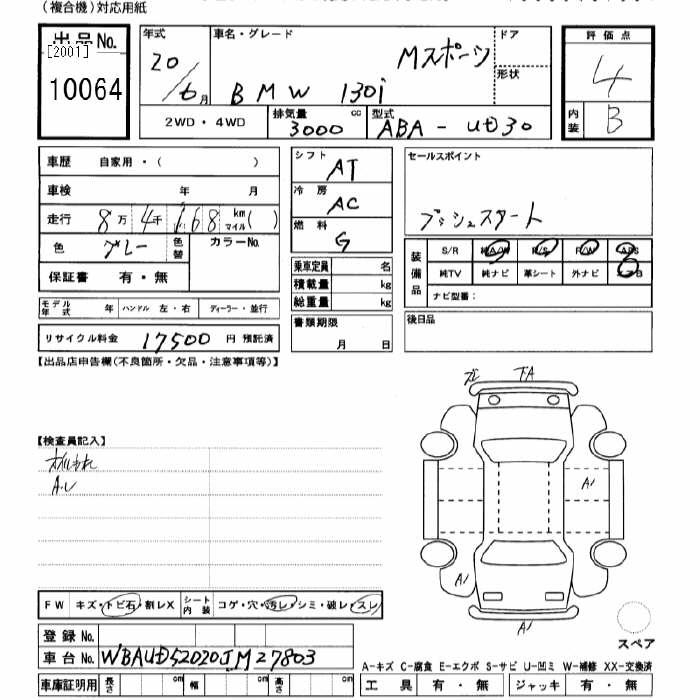 (複合機)対応用紙
出品No.
[2001]
10064
年式 20/6月
車名・グレード Mスポーツ
BMW 130i
ドア
形状
2WD・4WD
排気量 3000 cc
型式 ABA-UD30
評価点 4
内装 B
車歴 自家用・( )
車検 年 月
走行 8万 4千 168 km マイル( )
色 グレー 色替 カラーNo.
保証書 有・無
シフト AT
冷房 AC
燃料 G
乗車定員 名
積載量 kg
総重量 kg
書類期限
月 日
セールスポイント
プッシュスタート
装備品
S/R 純A/W P/S P/W ABS
純TV 純ナビ 革シート 外ナビ エアB
ナビ型番:
後日品
モデル年式 年 ハンドル 左・右 ディーラー・並行
リサイクル料金 17500 円 預託済
【出品店申告欄(不良箇所・欠品・注意事項等)】
【検査員記入】
A・レ
下A
A1
A1
A1
FW キズ・トビ石・割レX シート内装 コゲ・穴・汚レ・シミ・破レ・スレ
登録No.
車台No. WBAUD52020JM27803
スペア
A-キズ C-腐食 E-エクボ S-サビ U-凹ミ W-補修 XX-交換済
車庫証明用 長さ cm 幅 cm 高さ cm
工具 有・無 ジャッキ 有・無